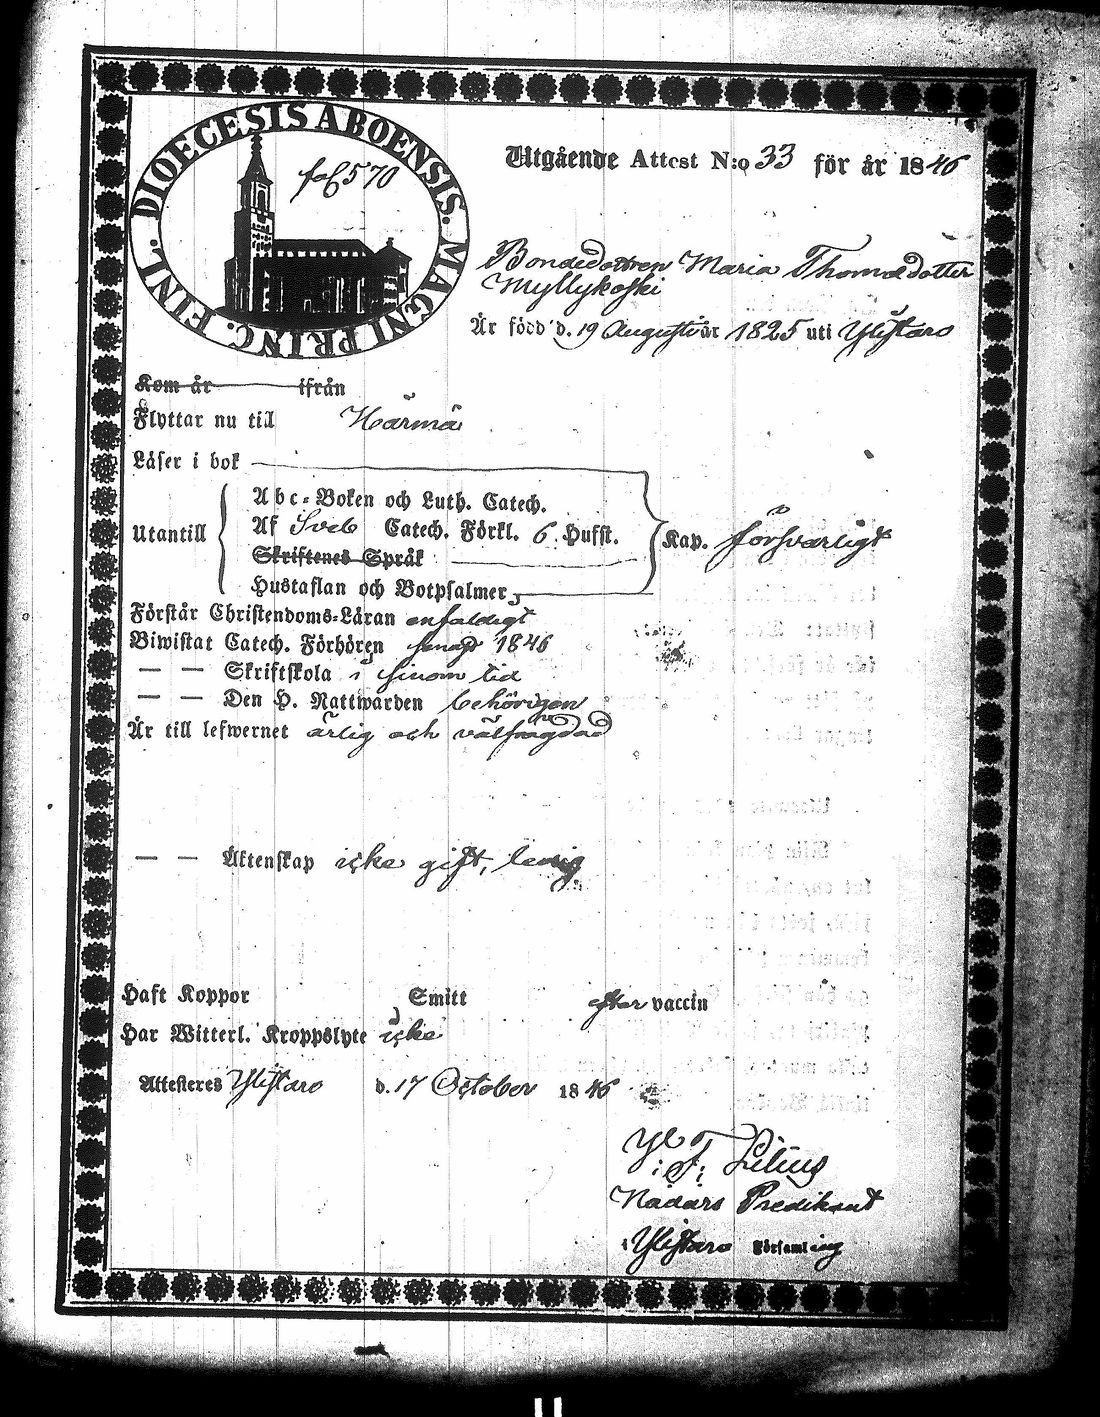 DIOECESIS ABOENSIS. MAGNI PRINC. FINL.
fol 570
Utgående Attest N:o 33 för år 1846
Bondedottren Maria Thomædotter
Myllykoski
Är född d. 19 Augusti år 1825 uti Ylistaro
Kom år ifrån
Flyttar nu till Härmä
Läser i bok
Abc-Boken och Luth. Catech.
Utantill Af Sveb Catech. Förkl. 6 Hufst. Kap. försvarligt
Skriftenes Språk
Hustaflan och Botpsalmer,
Förstår Christendoms-Läran enfaldigt
Biwistat Catech. Förhören senast 1846
— — Skriftskola i sinom tid
— — Den H. Nattwarden behörigen
Är till lefwernet ärlig och välfrägdad
— — Äktenskap icke gift, ledig
Haft Koppor Smitt efter vaccin
Har Witterl. Kroppslyte icke
Attesteres Ylistaro d. 17 October 1846
Lilius
Nådårs Predikant
i Ylistaro Församling